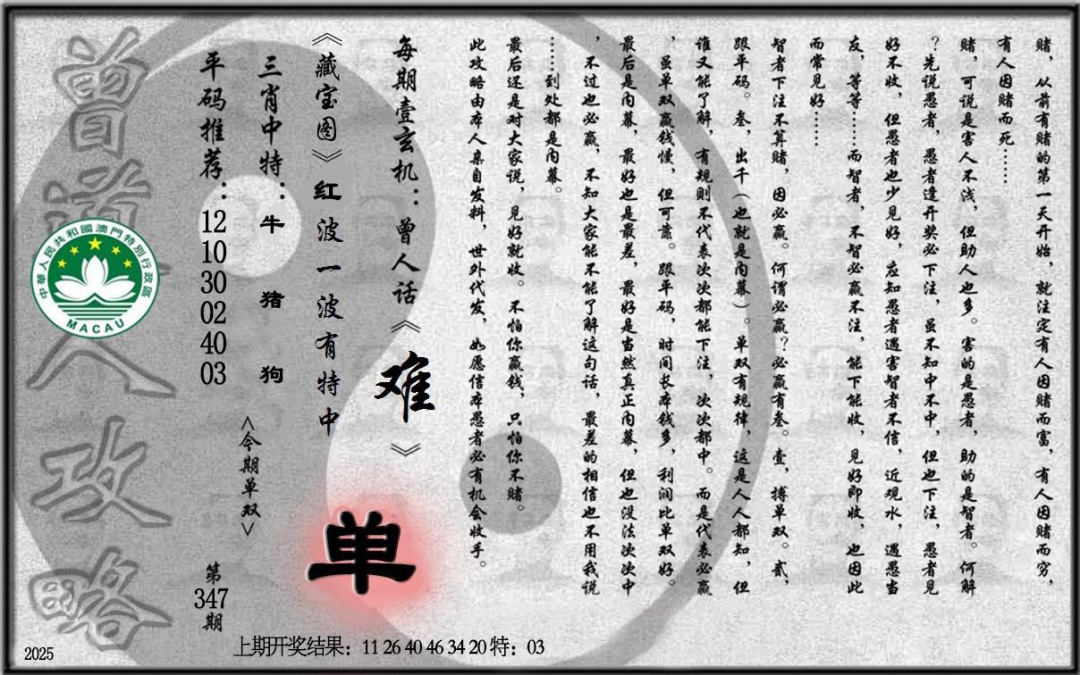 赌，从前有赌的第一天开始，就注定有人因赌而富，有人因赌而穷，
有人因赌而死……
赌，可说是害人不浅，但助人也多。害的是愚者，助的是智者。何解
？先说愚者，愚者逢开奖必下注，虽不知中不中，但也下注，愚者见
好不收，但愚者也少见好，应知愚者遇害智者不信，近观水，遇愚当
友，等等……而智者，不智必赢不注，能下能收，见好即收，也因此
而常见好……
智者下注不算赌，因必赢。何谓必赢？必赢有叁。壹，搏单双。贰，
跟平码。叁，出千（也就是内幕）。单双有规律，这是人人都知，但
谁又能了解，有规则不代表次次都能下注，次次都中。而是代表必赢
，虽单双赢钱慢，但可靠。跟平码，时间长本钱多，利润比单双好。
最后是内幕，最好也是最差，最好是当然真正内幕，但也没法次次中
，不过也必赢，不知大家能不能了解这句话，最差的相信也不用我说
……到处都是内幕。
最后还是对大家说，见好就收。不怕你赢钱，只怕你不赌。
此攻略由本人亲自发料，世外代发，如愿信本愚者必有机会收手。
每期壹玄机：曾人话《难》
《藏宝图》红波一波有特中
单
三肖中特：牛 猪 狗
<今期单双>
平码推荐：12 10 30 02 40 03
第347期
曾道人攻略
中華人民共和國澳門特別行政區
MACAU
上期开奖结果：11 26 40 46 34 20 特：03
2025